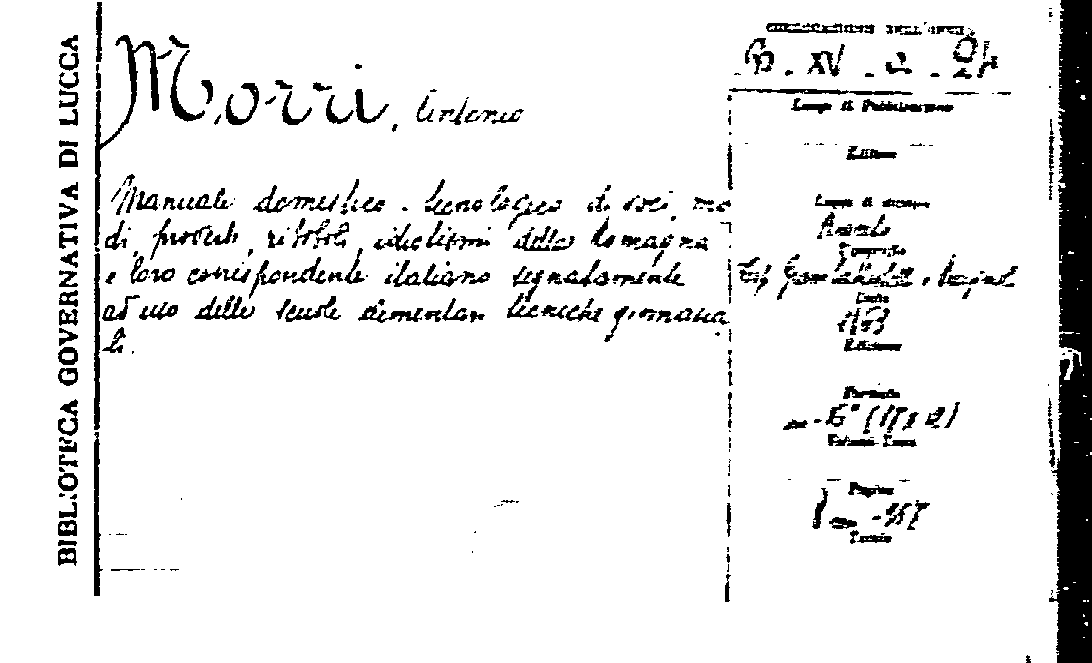 BIBLIOTECA GOVERNATIVA DI LUCCA
Morri, Antonio
Manuale domestico-tecnologico di voci, mo
di proverb, riboboli, idiotismi della Romagna
e loro corrispondente italiano segnatamente
ad uso delle scuole elementari tecniche ginnasia
li.
COLLOCAZIONE DELL'OPERA
B. XV. 2. 24
Luogo di Pubblicazione
Editore
Luogo di stampa
Tipografo
Tip
Data
Edizione
Formato
16°
Volume
Pagine
Tavole